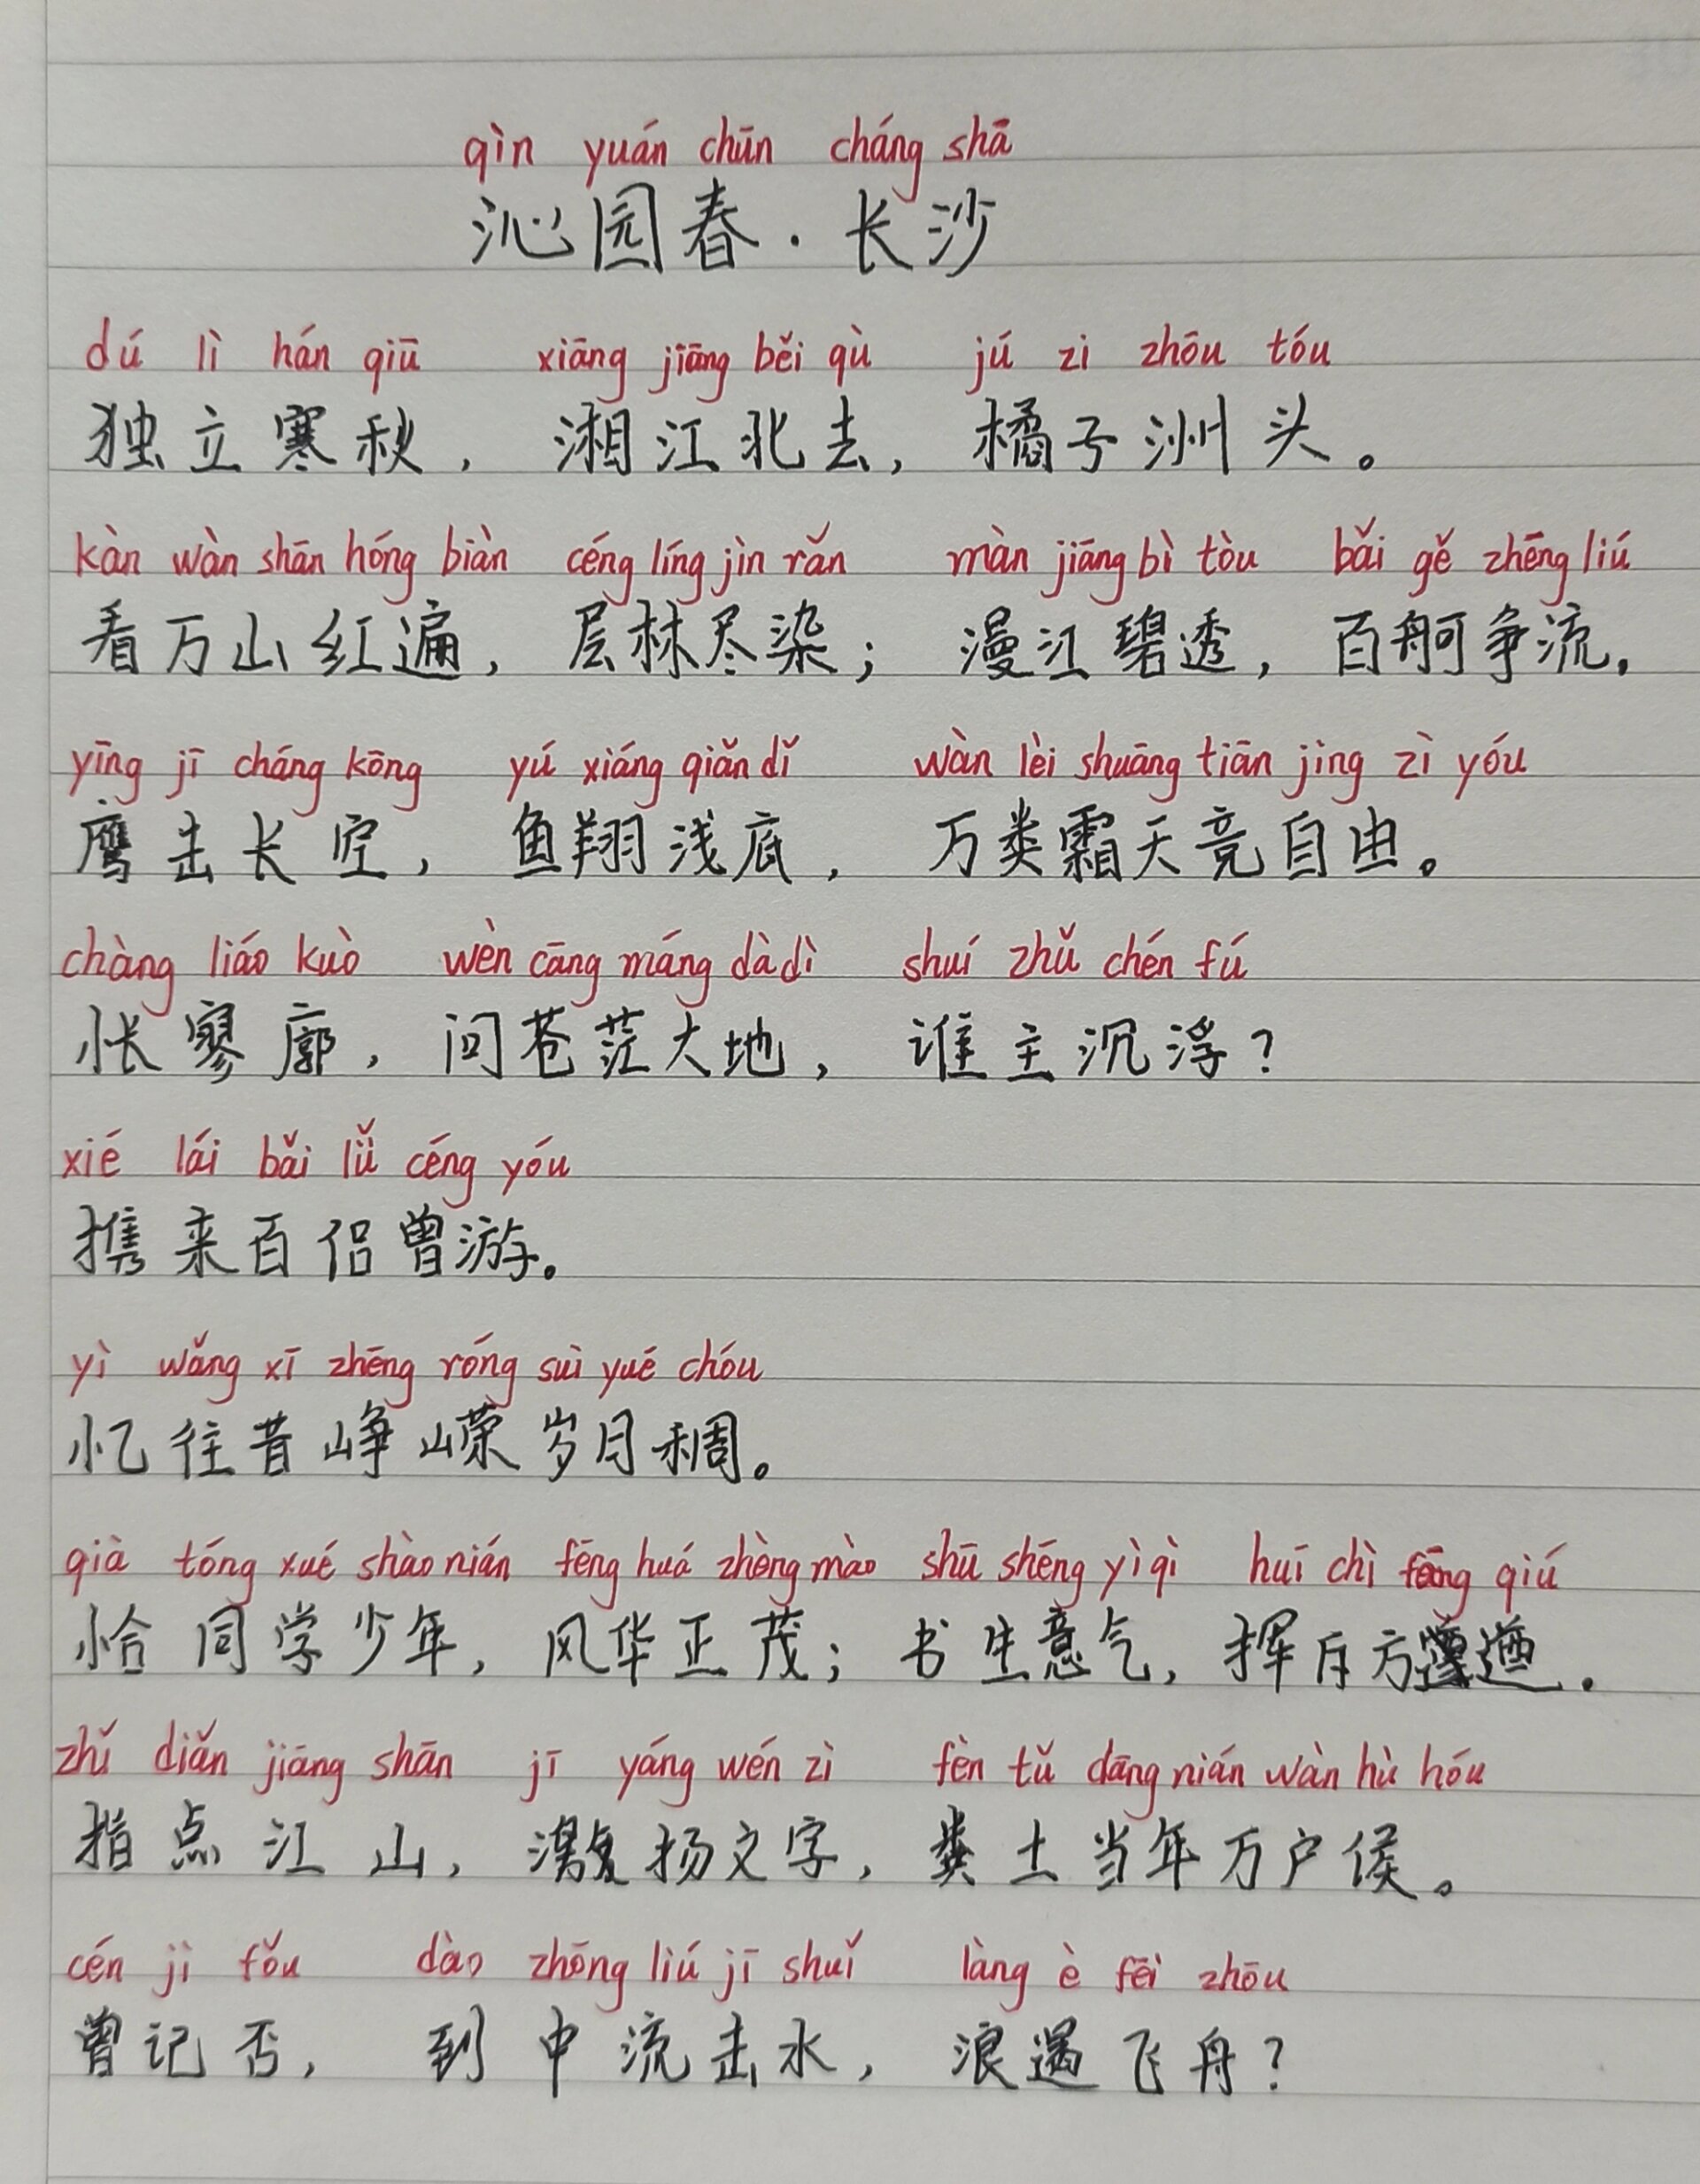 qìn yuán chūn cháng shā
沁园春·长沙
dú lì hán qiū xiāng jiāng běi qù jú zi zhōu tóu
独立寒秋，湘江北去，橘子洲头。
kàn wàn shān hóng biàn céng líng jìn rǎn màn jiāng bì tòu bǎi gě zhēng liú
看万山红遍，层林尽染；漫江碧透，百舸争流，
yīng jī cháng kōng yú xiáng qiǎn dǐ wàn lèi shuāng tiān jìng zì yóu
鹰击长空，鱼翔浅底，万类霜天竞自由。
chàng liáo kuò wèn cāng máng dà dì shuí zhǔ chén fú
怅寥廓，问苍茫大地，谁主沉浮？
xié lái bǎi lǚ céng yóu
携来百侣曾游。
yì wǎng xī zhēng róng suì yué chóu
忆往昔峥嵘岁月稠。
qià tóng xué shào nián fēng huá zhèng mào shū shēng yì qì huī chì fāng qiú
恰同学少年，风华正茂；书生意气，挥斥方遒.
zhǐ diǎn jiāng shān jī yáng wén zì fèn tǔ dāng nián wàn hù hóu
指点江山，激扬文字，粪土当年万户侯。
cén jì fǒu dào zhōng liú jī shuǐ làng è fēi zhōu
曾记否，到中流击水，浪遏飞舟？